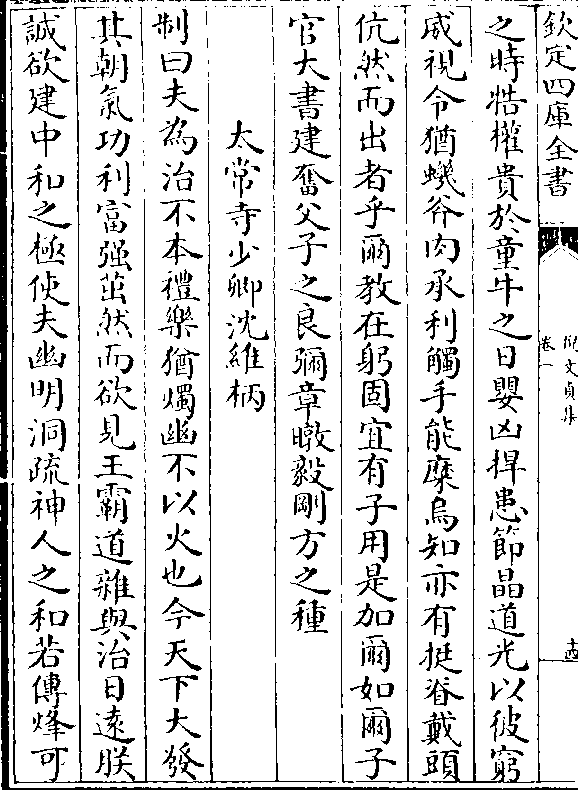 欽定四庫全書
倪文貞集
卷一
十四
之時牿權貴於童牛之日嬰凶捍患節晶道光以彼窮
威視令猶蟣谷肉承利觸手能糜烏知亦有挺脊戴頭
伉然而出者乎爾教在躬固宜有子用是加爾如爾子
官大書建奮父子之良彌章暾毅剛方之種
太常寺少卿沈維柄
制曰夫為治不本禮樂猶燭幽不以火也今天下大發
其朝氣功利富强茁然而欲見王霸道雜與治日遠朕
誠欲建中和之極使夫幽明洞疏神人之和若傳烽可